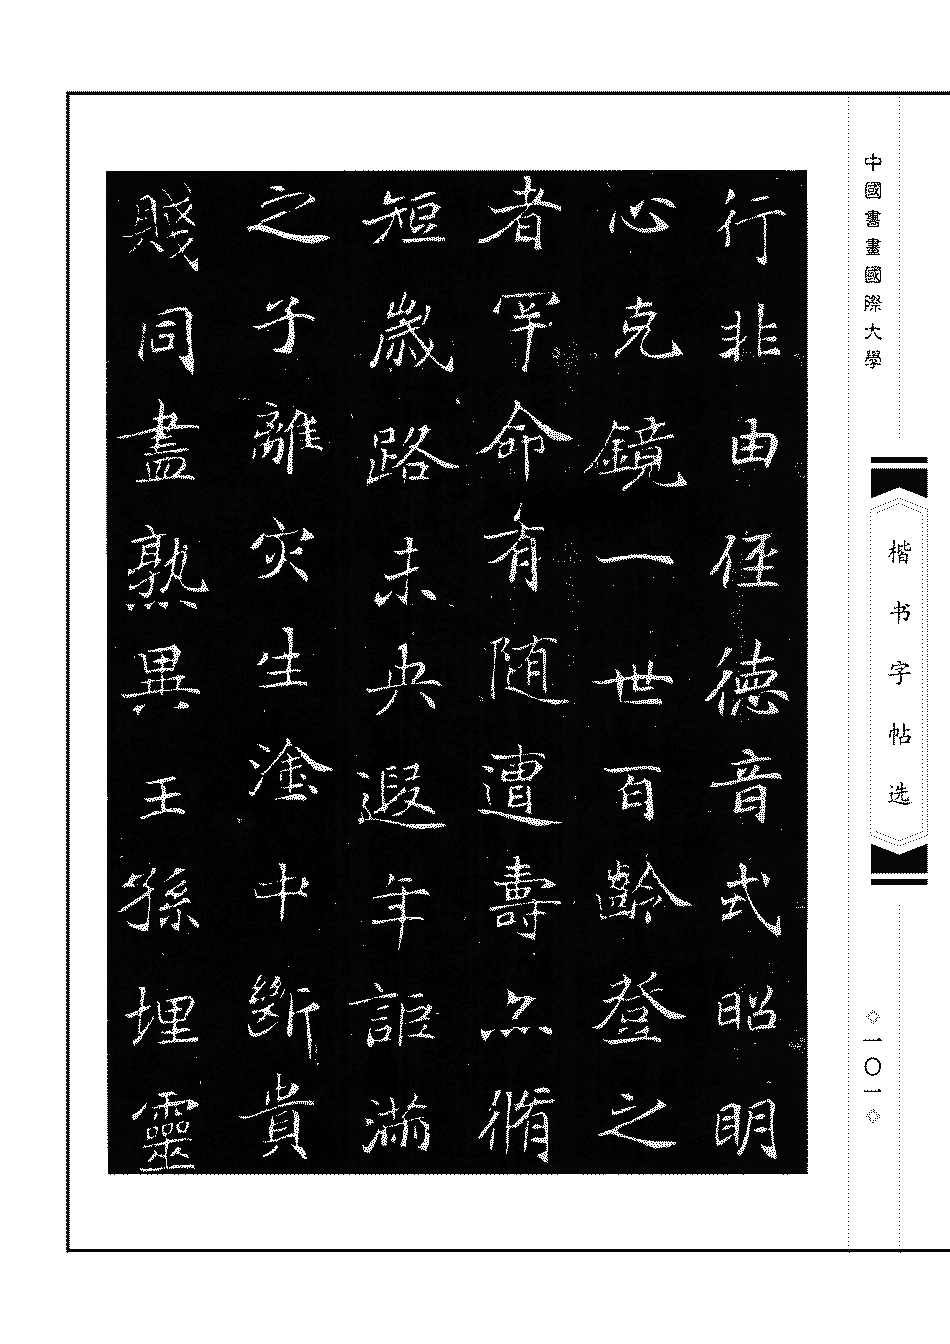 中國書畫國際大學
楷书字帖选
一〇一
行非由徑德音式昭明
心克鏡一世百齡登之
者罕命有随遭壽亦脩
短歲路未央遐年詎滿
之子離灾生塗中斷貴
賤同盡熟異王孫埋靈